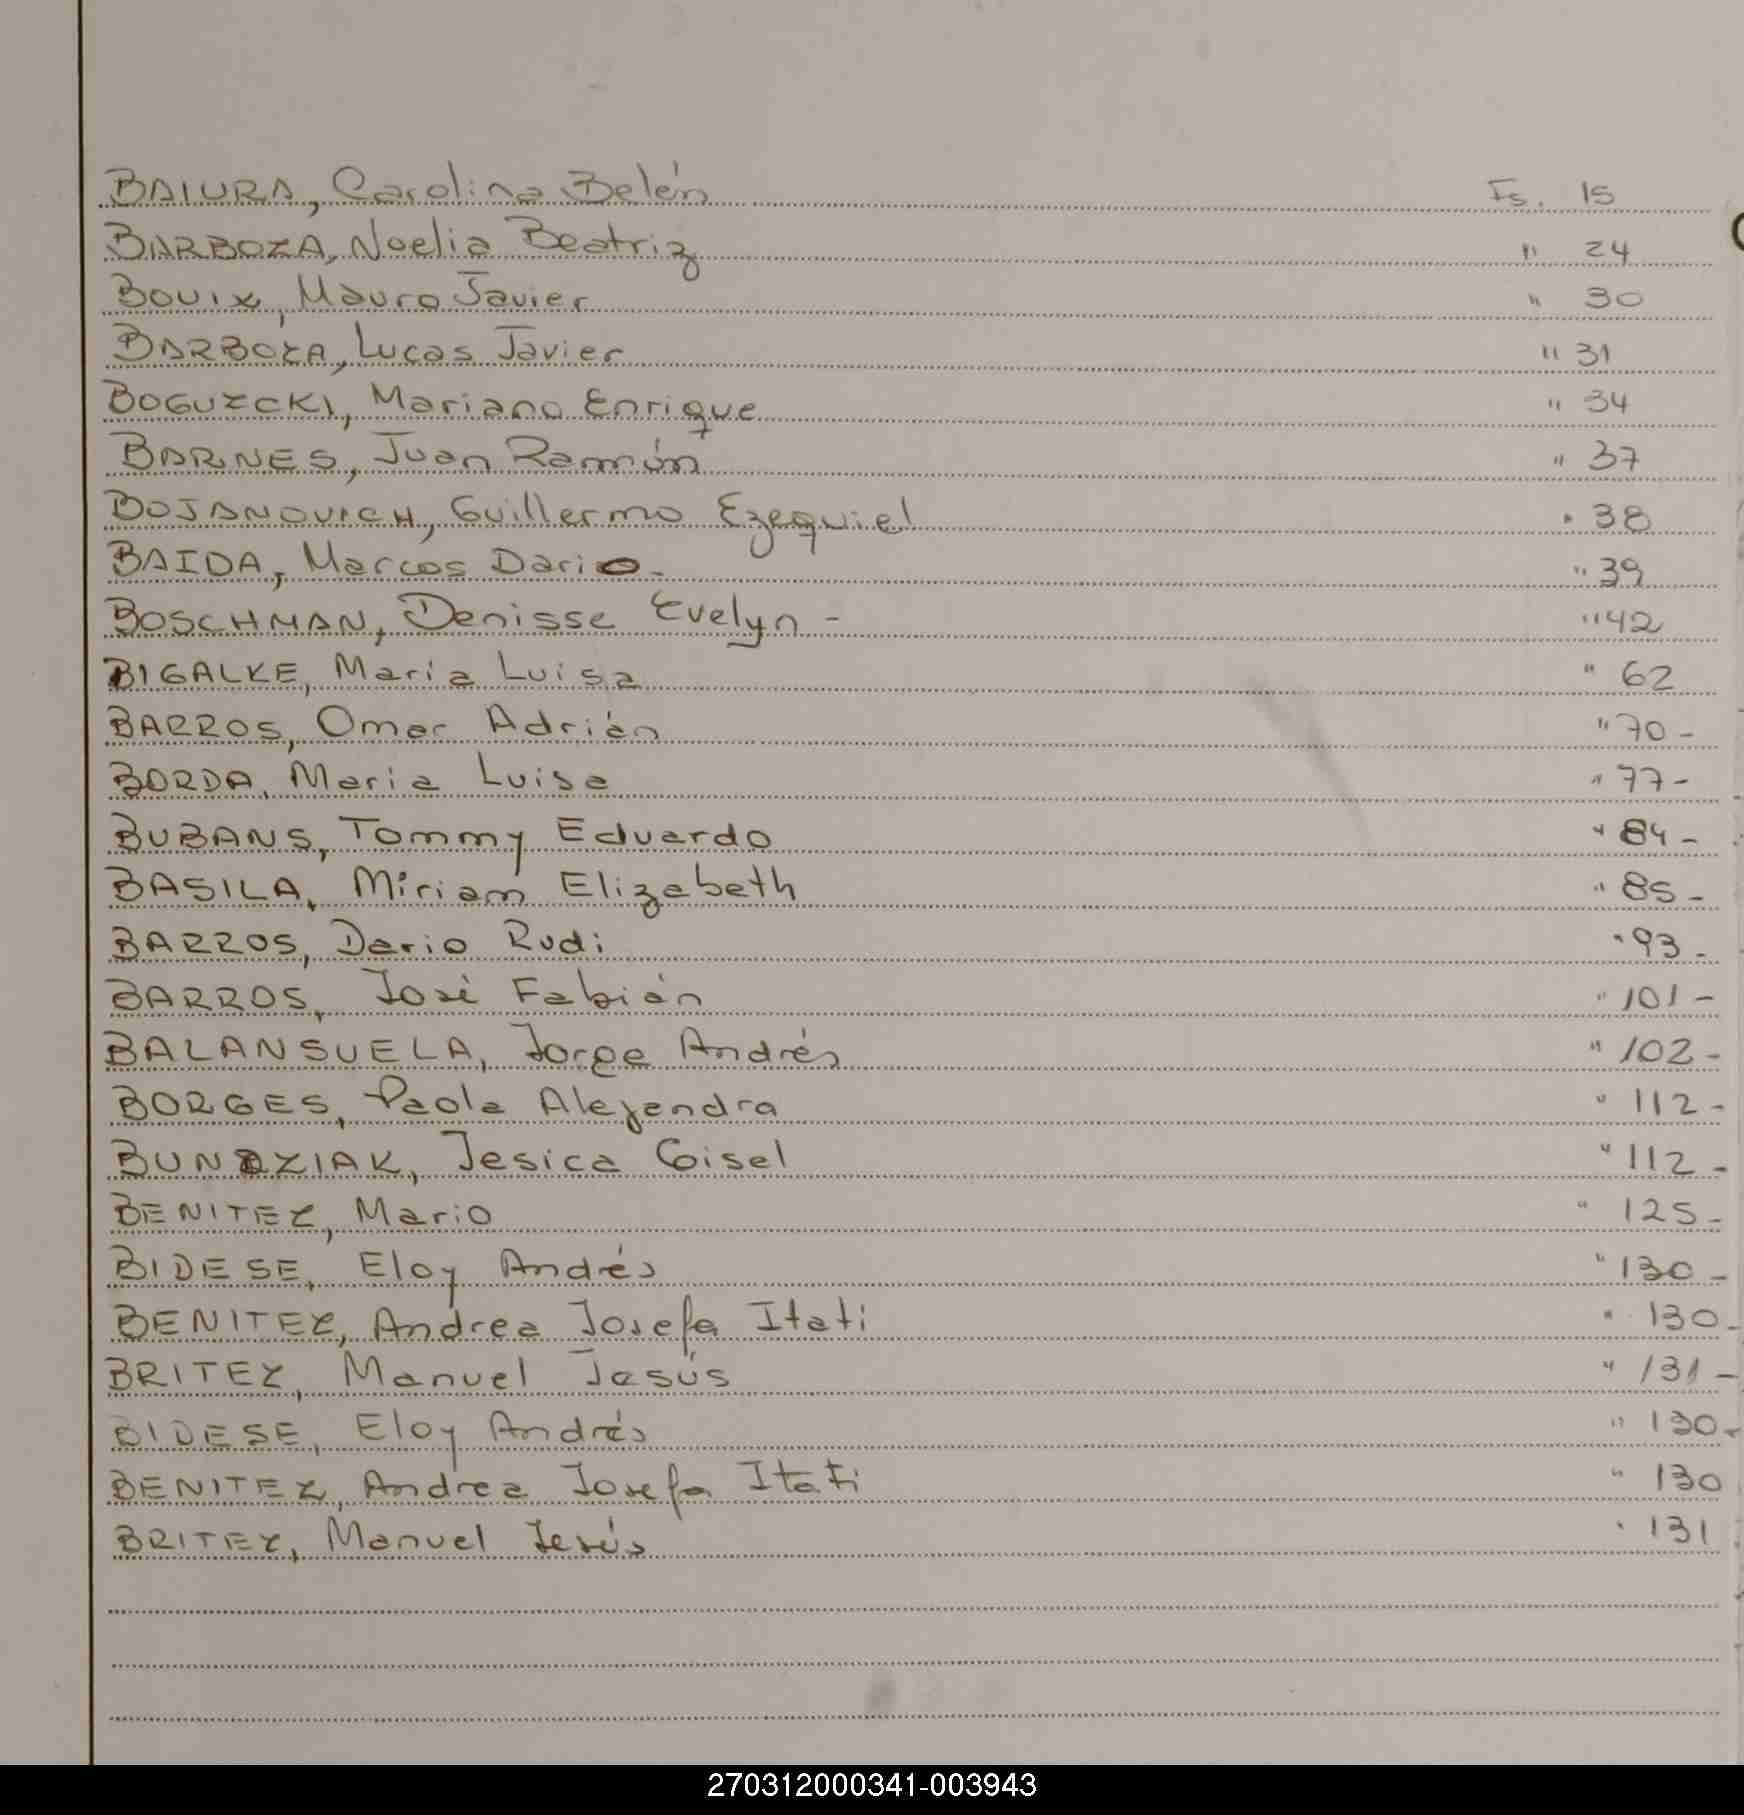 BAIURA, Carolina Belén Fs. 15
BARBOZA, Noelia Beatriz " 24
BOUIX, Mauro Javier " 30
BARBOZA, Lucas Javier " 31
BOGUZCKI, Mariano Enrique " 34
BARNES, Juan Ramón " 37
BOJANOVICH, Guillermo Ezequiel " 38
BAIDA, Marcos Dario- " 39
BOSCHMAN, Denisse Evelyn - " 42
BIGALKE, María Luisa " 62
BARROS, Omar Adrián " 70-
BORDA, Maria Luisa " 77-
BUBANS, Tommy Eduardo " 84-
BASILA, Miriam Elizabeth " 85-
BARROS, Dario Rudi " 93-
BARROS, José Fabián " 101-
BALANSUELA, Jorge Andrés " 102-
BORGES, Paola Alejandra " 112-
BUNDZIAK, Jesica Gisel " 112-
BENITEZ, Mario " 125-
BIDESE, Eloy Andrés " 130-
BENITEZ, Andrea Josefa Itati " 130-
BRITEZ, Manuel Jesús " 131-
BIDESE, Eloy Andrés " 130-
BENITEZ, Andrea Josefa Itati " 130
BRITEZ, Manuel Jesús " 131
270312000341-003943